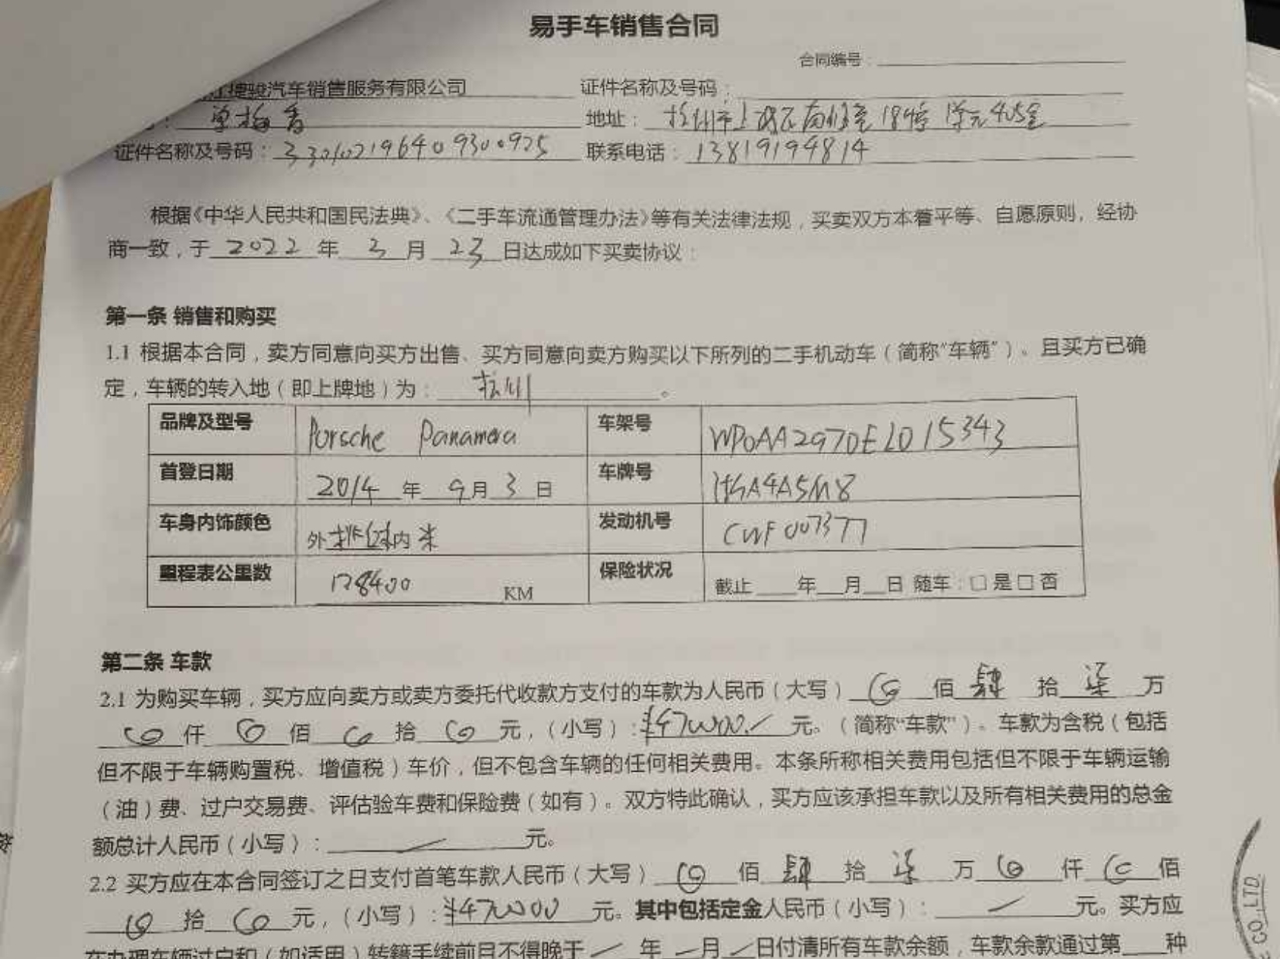 易手车销售合同
合同编号：
捷骏汽车销售服务有限公司 证件名称及号码：
单梅香 地址： 杭州市上城区 184号 1单元405室
证件名称及号码：330102196409300925 联系电话：13819194814
根据《中华人民共和国民法典》、《二手车流通管理办法》等有关法律法规，买卖双方本着平等、自愿原则，经协
商一致，于 2022 年 3 月 23 日达成如下买卖协议：
第一条 销售和购买
1.1 根据本合同，卖方同意向买方出售、买方同意向卖方购买以下所列的二手机动车（简称“车辆”）。且买方已确
定，车辆的转入地（即上牌地）为： 杭州 。
品牌及型号 Porsche Panamera 车架号 WP0AA2970EL015343
首登日期 2014 年 9 月 3 日 车牌号 浙A4A5M8
车身内饰颜色 外 内米 发动机号 CWF007377
里程表公里数 128400 KM 保险状况 截止 年 月 日 随车：□是□否
第二条 车款
2.1 为购买车辆，买方应向卖方或卖方委托代收款方支付的车款为人民币（大写） 佰 肆 拾 柒 万
仟 佰 拾 元，（小写）：¥470000/ 元。（简称“车款”）。车款为含税（包括
但不限于车辆购置税、增值税）车价，但不包含车辆的任何相关费用。本条所称相关费用包括但不限于车辆运输
（油）费、过户交易费、评估验车费和保险费（如有）。双方特此确认，买方应该承担车款以及所有相关费用的总金
额总计人民币（小写）： / 元。
2.2 买方应在本合同签订之日支付首笔车款人民币（大写） 佰 肆 拾 柒 万 仟 佰
拾 元，（小写）：¥470000 元。其中包括定金人民币（小写）： / 元。买方应
在办理车辆过户和（如适用）转籍手续前且不得晚于 / 年 / 月 / 日付清所有车款余额，车款余款通过第 种
CO.,LTD.